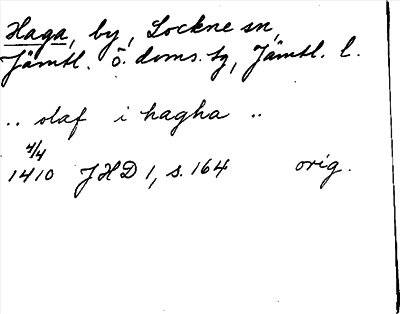 Haga, by, Lockne sn,
Jämtl. ö. doms. tg, Jämtl. l.
.. olaf i hagha ..
4/4
1410 JHD 1, s. 164 orig.